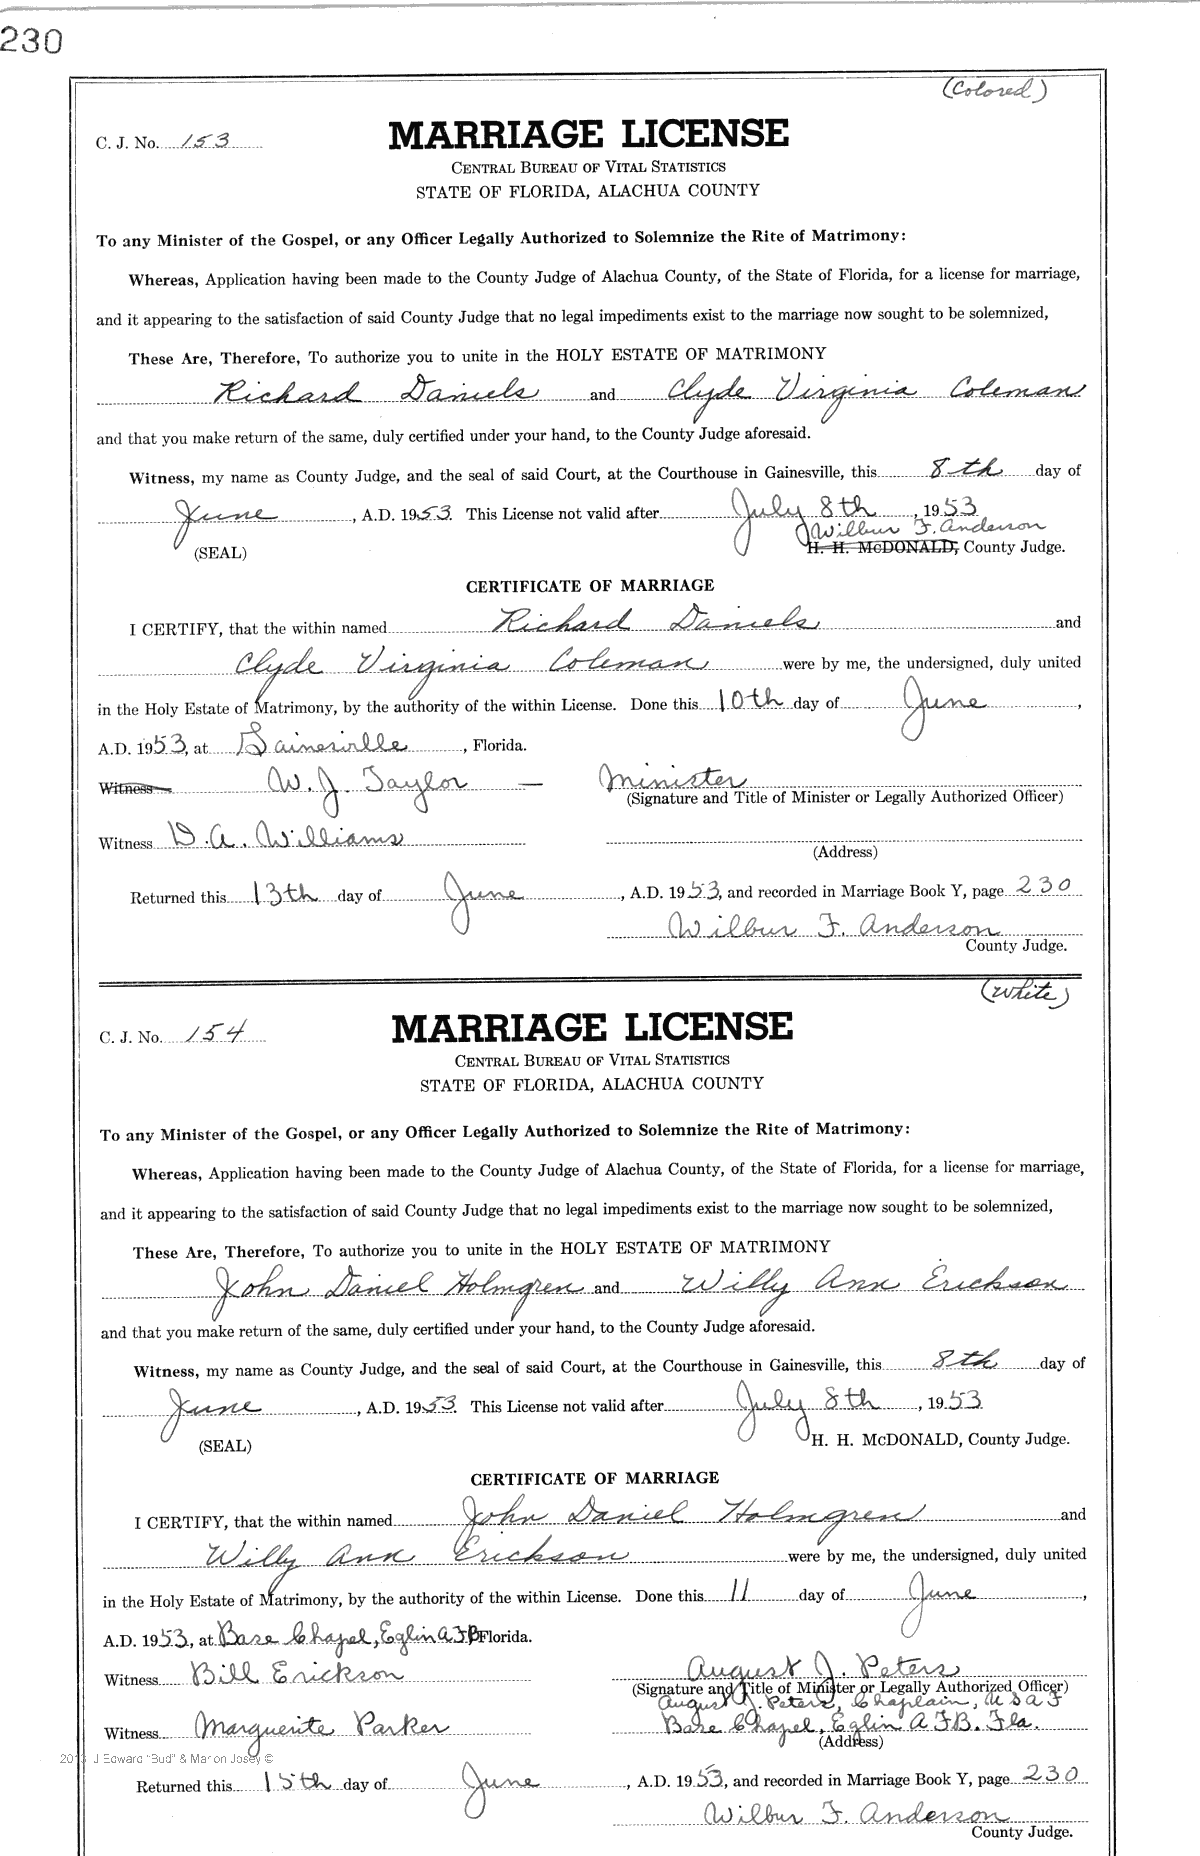 230
(Colored)
C. J. No. 153
MARRIAGE LICENSE
CENTRAL BUREAU OF VITAL STATISTICS
STATE OF FLORIDA, ALACHUA COUNTY
To any Minister of the Gospel, or any Officer Legally Authorized to Solemnize the Rite of Matrimony:
Whereas, Application having been made to the County Judge of Alachua County, of the State of Florida, for a license for marriage,
and it appearing to the satisfaction of said County Judge that no legal impediments exist to the marriage now sought to be solemnized,
These Are, Therefore, To authorize you to unite in the HOLY ESTATE OF MATRIMONY
Richard Daniels and Clyde Virginia Coleman
and that you make return of the same, duly certified under your hand, to the County Judge aforesaid.
Witness, my name as County Judge, and the seal of said Court, at the Courthouse in Gainesville, this 8th day of
June, A.D. 1953. This License not valid after July 8th, 1953
Wilbur F. Anderson
(SEAL) H. H. McDONALD, County Judge.
CERTIFICATE OF MARRIAGE
I CERTIFY, that the within named Richard Daniels and
Clyde Virginia Coleman were by me, the undersigned, duly united
in the Holy Estate of Matrimony, by the authority of the within License. Done this 10th day of June,
A.D. 1953, at Gainesville, Florida.
Witness W. J. Taylor — Minister
(Signature and Title of Minister or Legally Authorized Officer)
Witness D. A. Williams
(Address)
Returned this 13th day of June, A.D. 1953, and recorded in Marriage Book Y, page 230
Wilbur F. Anderson
County Judge.
(White)
C. J. No. 154
MARRIAGE LICENSE
CENTRAL BUREAU OF VITAL STATISTICS
STATE OF FLORIDA, ALACHUA COUNTY
To any Minister of the Gospel, or any Officer Legally Authorized to Solemnize the Rite of Matrimony:
Whereas, Application having been made to the County Judge of Alachua County, of the State of Florida, for a license for marriage,
and it appearing to the satisfaction of said County Judge that no legal impediments exist to the marriage now sought to be solemnized,
These Are, Therefore, To authorize you to unite in the HOLY ESTATE OF MATRIMONY
John Daniel Holmgren and Willy Ann Erickson
and that you make return of the same, duly certified under your hand, to the County Judge aforesaid.
Witness, my name as County Judge, and the seal of said Court, at the Courthouse in Gainesville, this 8th day of
June, A.D. 1953. This License not valid after July 8th, 1953
(SEAL) H. H. McDONALD, County Judge.
CERTIFICATE OF MARRIAGE
I CERTIFY, that the within named John Daniel Holmgren and
Willy Ann Erickson were by me, the undersigned, duly united
in the Holy Estate of Matrimony, by the authority of the within License. Done this 11 day of June,
A.D. 1953, at Base Chapel, Eglin AFB Florida.
Witness Bill Erickson August J. Peters
(Signature and Title of Minister or Legally Authorized Officer)
August J. Peters, Chaplain, USAF
Witness Marguerite Parker Base Chapel, Eglin AFB. Fla.
(Address)
J Edward "Bud" & Marion Josey ©
Returned this 15th day of June, A.D. 1953, and recorded in Marriage Book Y, page 230
Wilbur F. Anderson
County Judge.